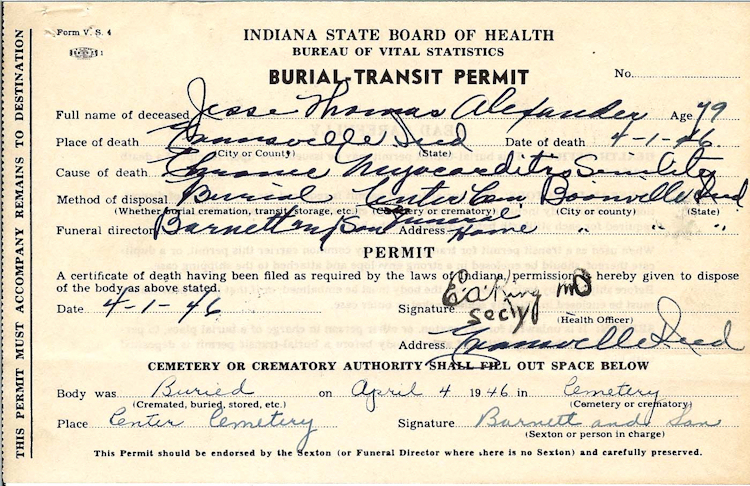 Form V. S. 4
INDIANA STATE BOARD OF HEALTH
BUREAU OF VITAL STATISTICS
BURIAL-TRANSIT PERMIT
No.
Full name of deceased Jesse Thomas Alexander Age 79
Place of death Evansville Ind Date of death 4-1-46
(City or County) (State)
Cause of death Chronic Myocarditis Senility
Method of disposal Burial Center Cem Boonville Ind
(Whether burial cremation, transit, storage, etc.) (Cemetery or crematory) (City or county) (State)
Funeral director Barnett & Son Funeral Home Address " " "
PERMIT
A certificate of death having been filed as required by the laws of Indiana, permission is hereby given to dispose
of the body as above stated.
Date 4-1-46 Signature MD
secty
(Health Officer)
Address Evansville Ind
CEMETERY OR CREMATORY AUTHORITY SHALL FILL OUT SPACE BELOW
Body was Buried on April 4 1946 in Cemetery
(Cremated, buried, stored, etc.) (Cemetery or crematory)
Place Center Cemetery Signature Barnett and Son
(Sexton or person in charge)
This Permit should be endorsed by the Sexton (or Funeral Director where there is no Sexton) and carefully preserved.
THIS PERMIT MUST ACCOMPANY REMAINS TO DESTINATION